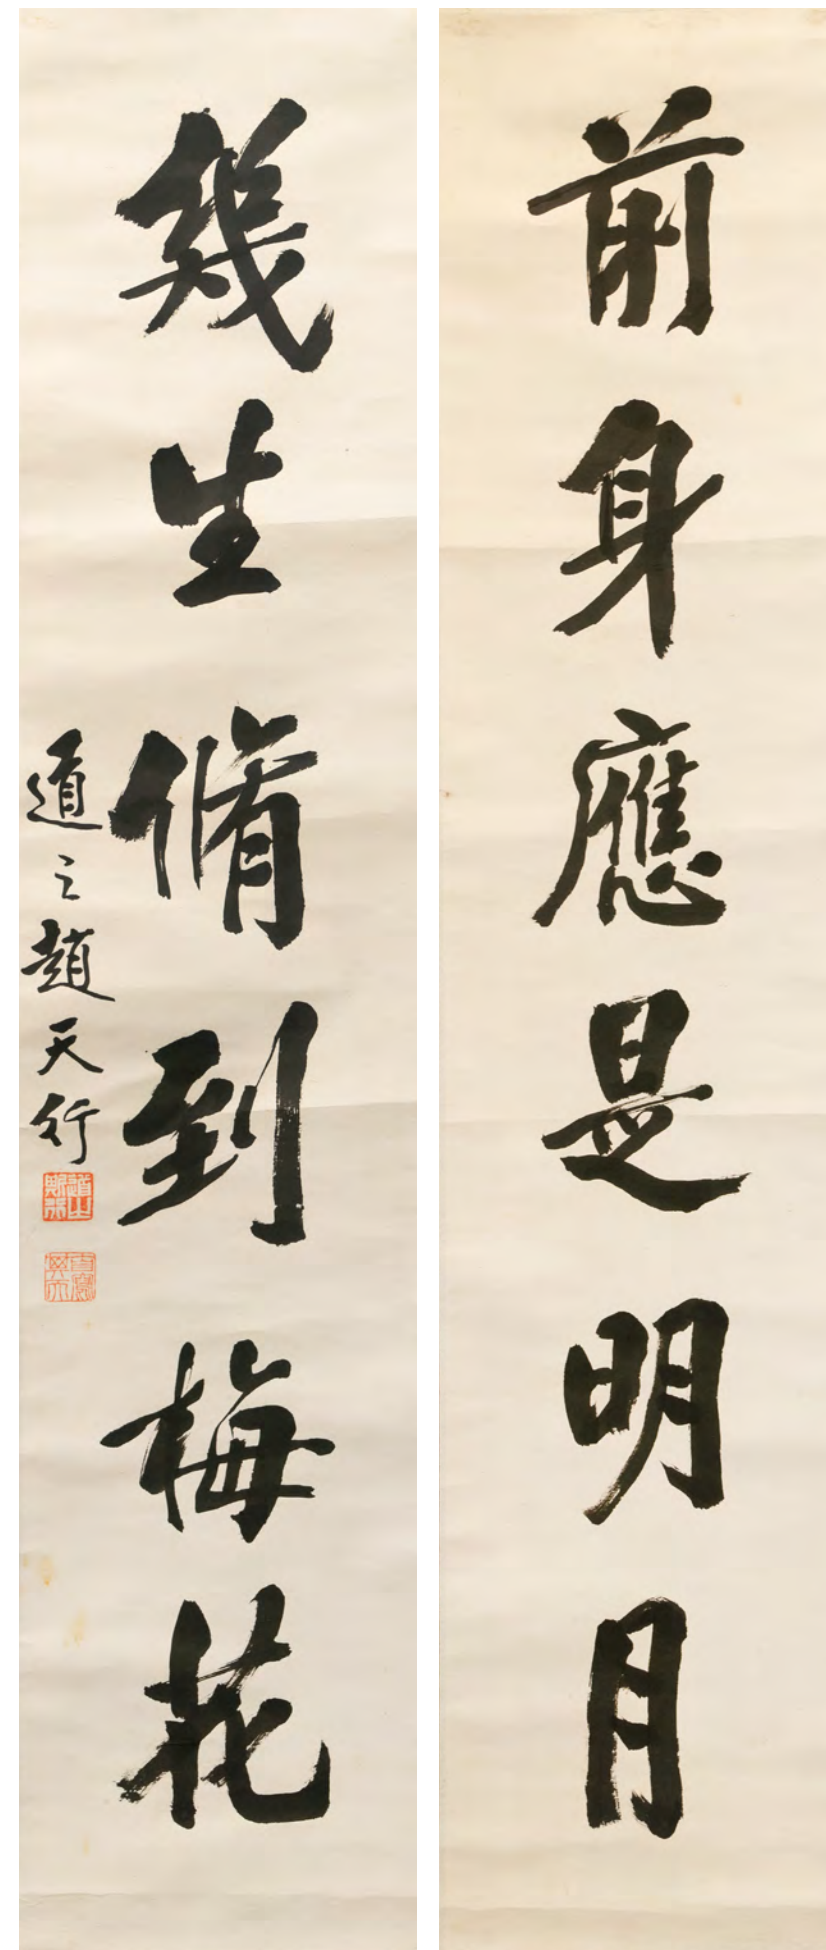 前身應是明月
幾生脩到梅花
道之趙天行